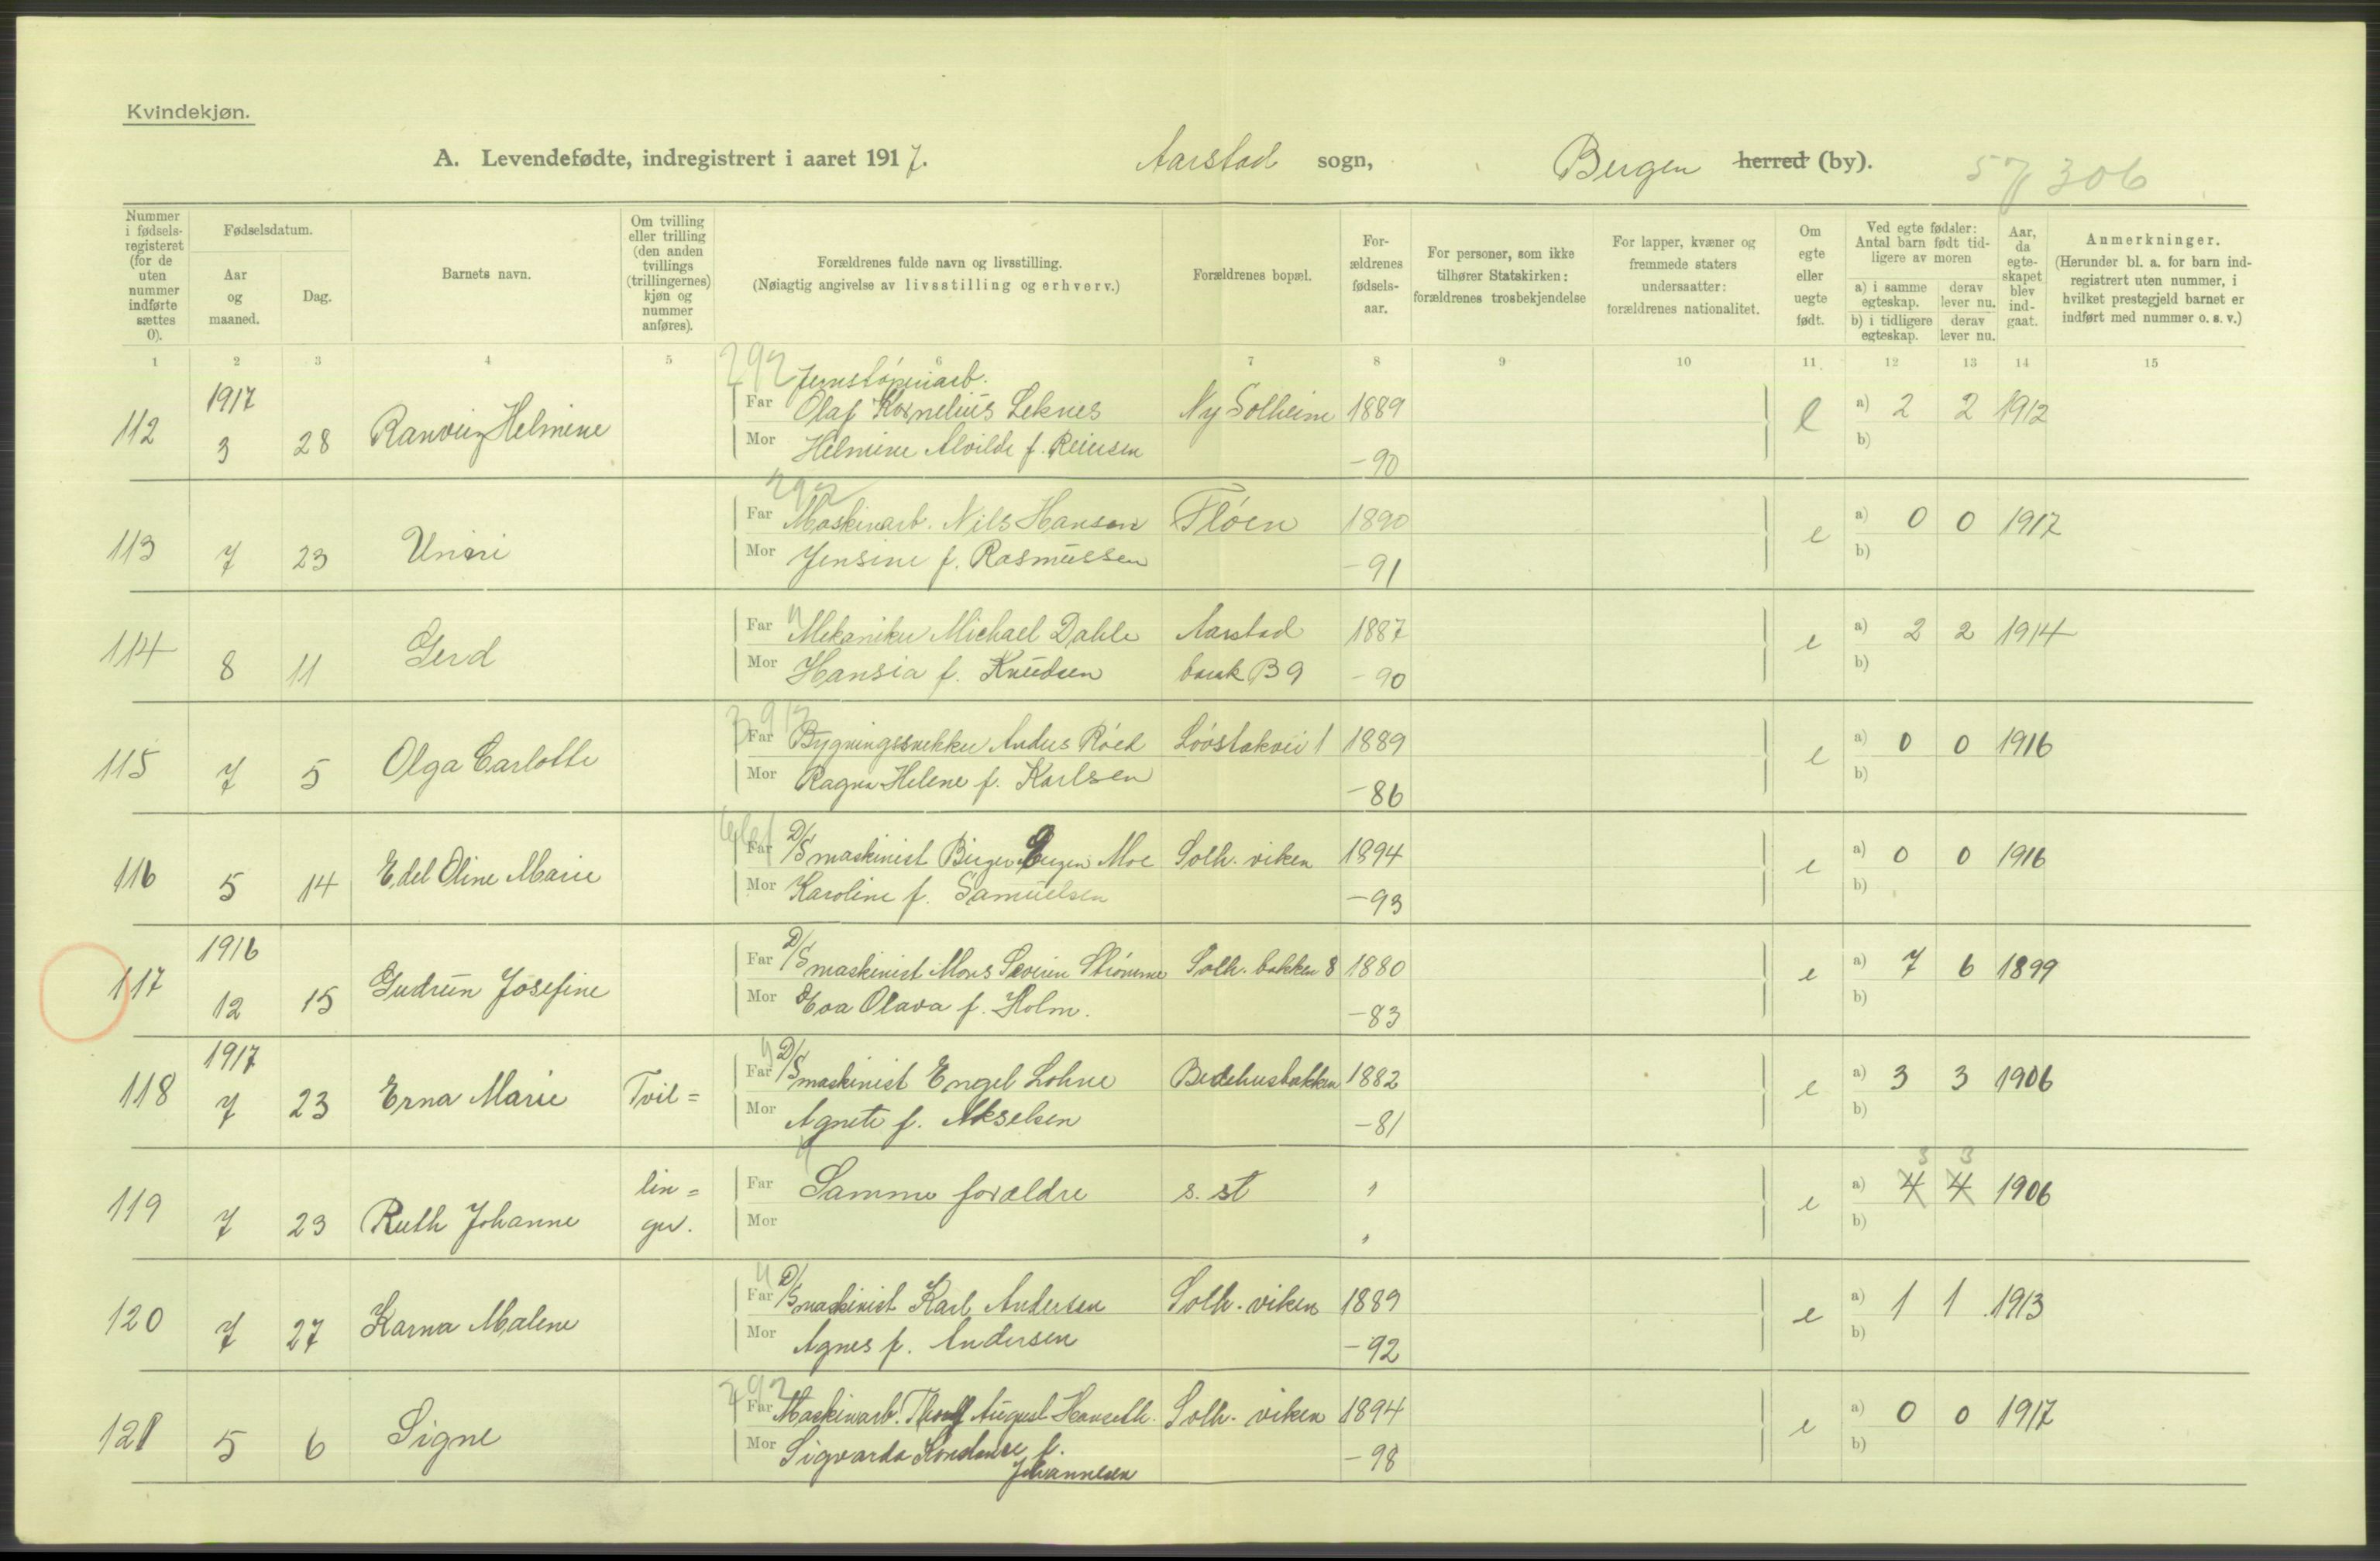 Kvindekjøn.
A. Levendefødte, indregistrert i aaret 1917. Aarstad sogn, Bergen herred (by). 57/306
Nummer i fødselsregisteret (for de uten nummer indførte sættes 0). Fødselsdatum. Aar og maaned. Dag. Barnets navn. Om tvilling eller trilling (den anden tvillings (trillingernes) kjøn og nummer anføres). Forældrenes fulde navn og livsstilling. (Nøiagtig angivelse av livsstilling og erhverv.) Forældrenes bopæl. Forældrenes fødselsaar. For personer, som ikke tilhører Statskirken: forældrenes trosbekjendelse For lapper, kvæner og fremmede staters undersaatter: forældrenes nationalitet. Om egte eller uegte født. Ved egte fødsler: Antal barn født tidligere av moren a) i samme egteskap. derav lever nu. b) i tidligere egteskap. derav lever nu. Aar, da egteskapet blev indgaat. Anmerkninger. (Herunder bl. a. for barn indregistrert uten nummer, i hvilket prestegjeld barnet er indført med nummer o. s. v.)
1 2 3 4 5 6 7 8 9 10 11 12 13 14 15
292 Jernstøperiarb.
1917
112 3 28 Ranveig Helmine Far Olaf Kornelius Leknes Ny Solheim 1889 e a) 2 2 1912
Mor Helmine Alvilde f. Reiersen -90 b)
292
113 7 23 Unni Far Maskinarb. Nils Hansen Fløen 1890 e a) 0 0 1917
Mor Jensine f. Rasmussen -91 b)
114 8 11 Gerd Far Mekaniker Michael Dahle Aarstad 1887 e a) 2 2 1914
Mor Hansia f. Knudsen barak B 9 -90 b)
115 7 5 Olga Carlotte Far Bygningssnekker Anders Røed Løvstakvei 1 1889 e a) 0 0 1916
Mor Ragna Helene f. Karlsen -86 b)
116 5 14 Edel Oline Marie Far D/S maskinist Birger Eugen Moe Solh. viken 1894 e a) 0 0 1916
Mor Karoline f. Samuelsen -93 b)
1916
117 12 15 Gudrun Josefine Far D/S maskinist Mons Severin Strømme Solh. bakken 8 1880 e a) 7 6 1899
Mor Eva Olava f. Holm. -83 b)
1917
118 7 23 Erna Marie Tvil= Far D/S maskinist Engel Lohne Bedehusbakken 1882 e a) 3 3 1906
Mor Agnete f. Akselsen -81 b)
3 3
119 7 23 Ruth Johanne lin= Far Samme forældre s. st " e a) 4 4 1906
ger. Mor " b)
120 7 27 Karna Malene Far D/S maskinist Karl Andersen Solh. viken 1889 e a) 1 1 1913
Mor Agnes f. Andersen -92 b)
292
121 5 6 Signe Far Maskinarb. August Hanseth. Solh. viken 1894 e a) 0 0 1917
Mor Sigvarda Konstanse f. -98 b)
Johannesen